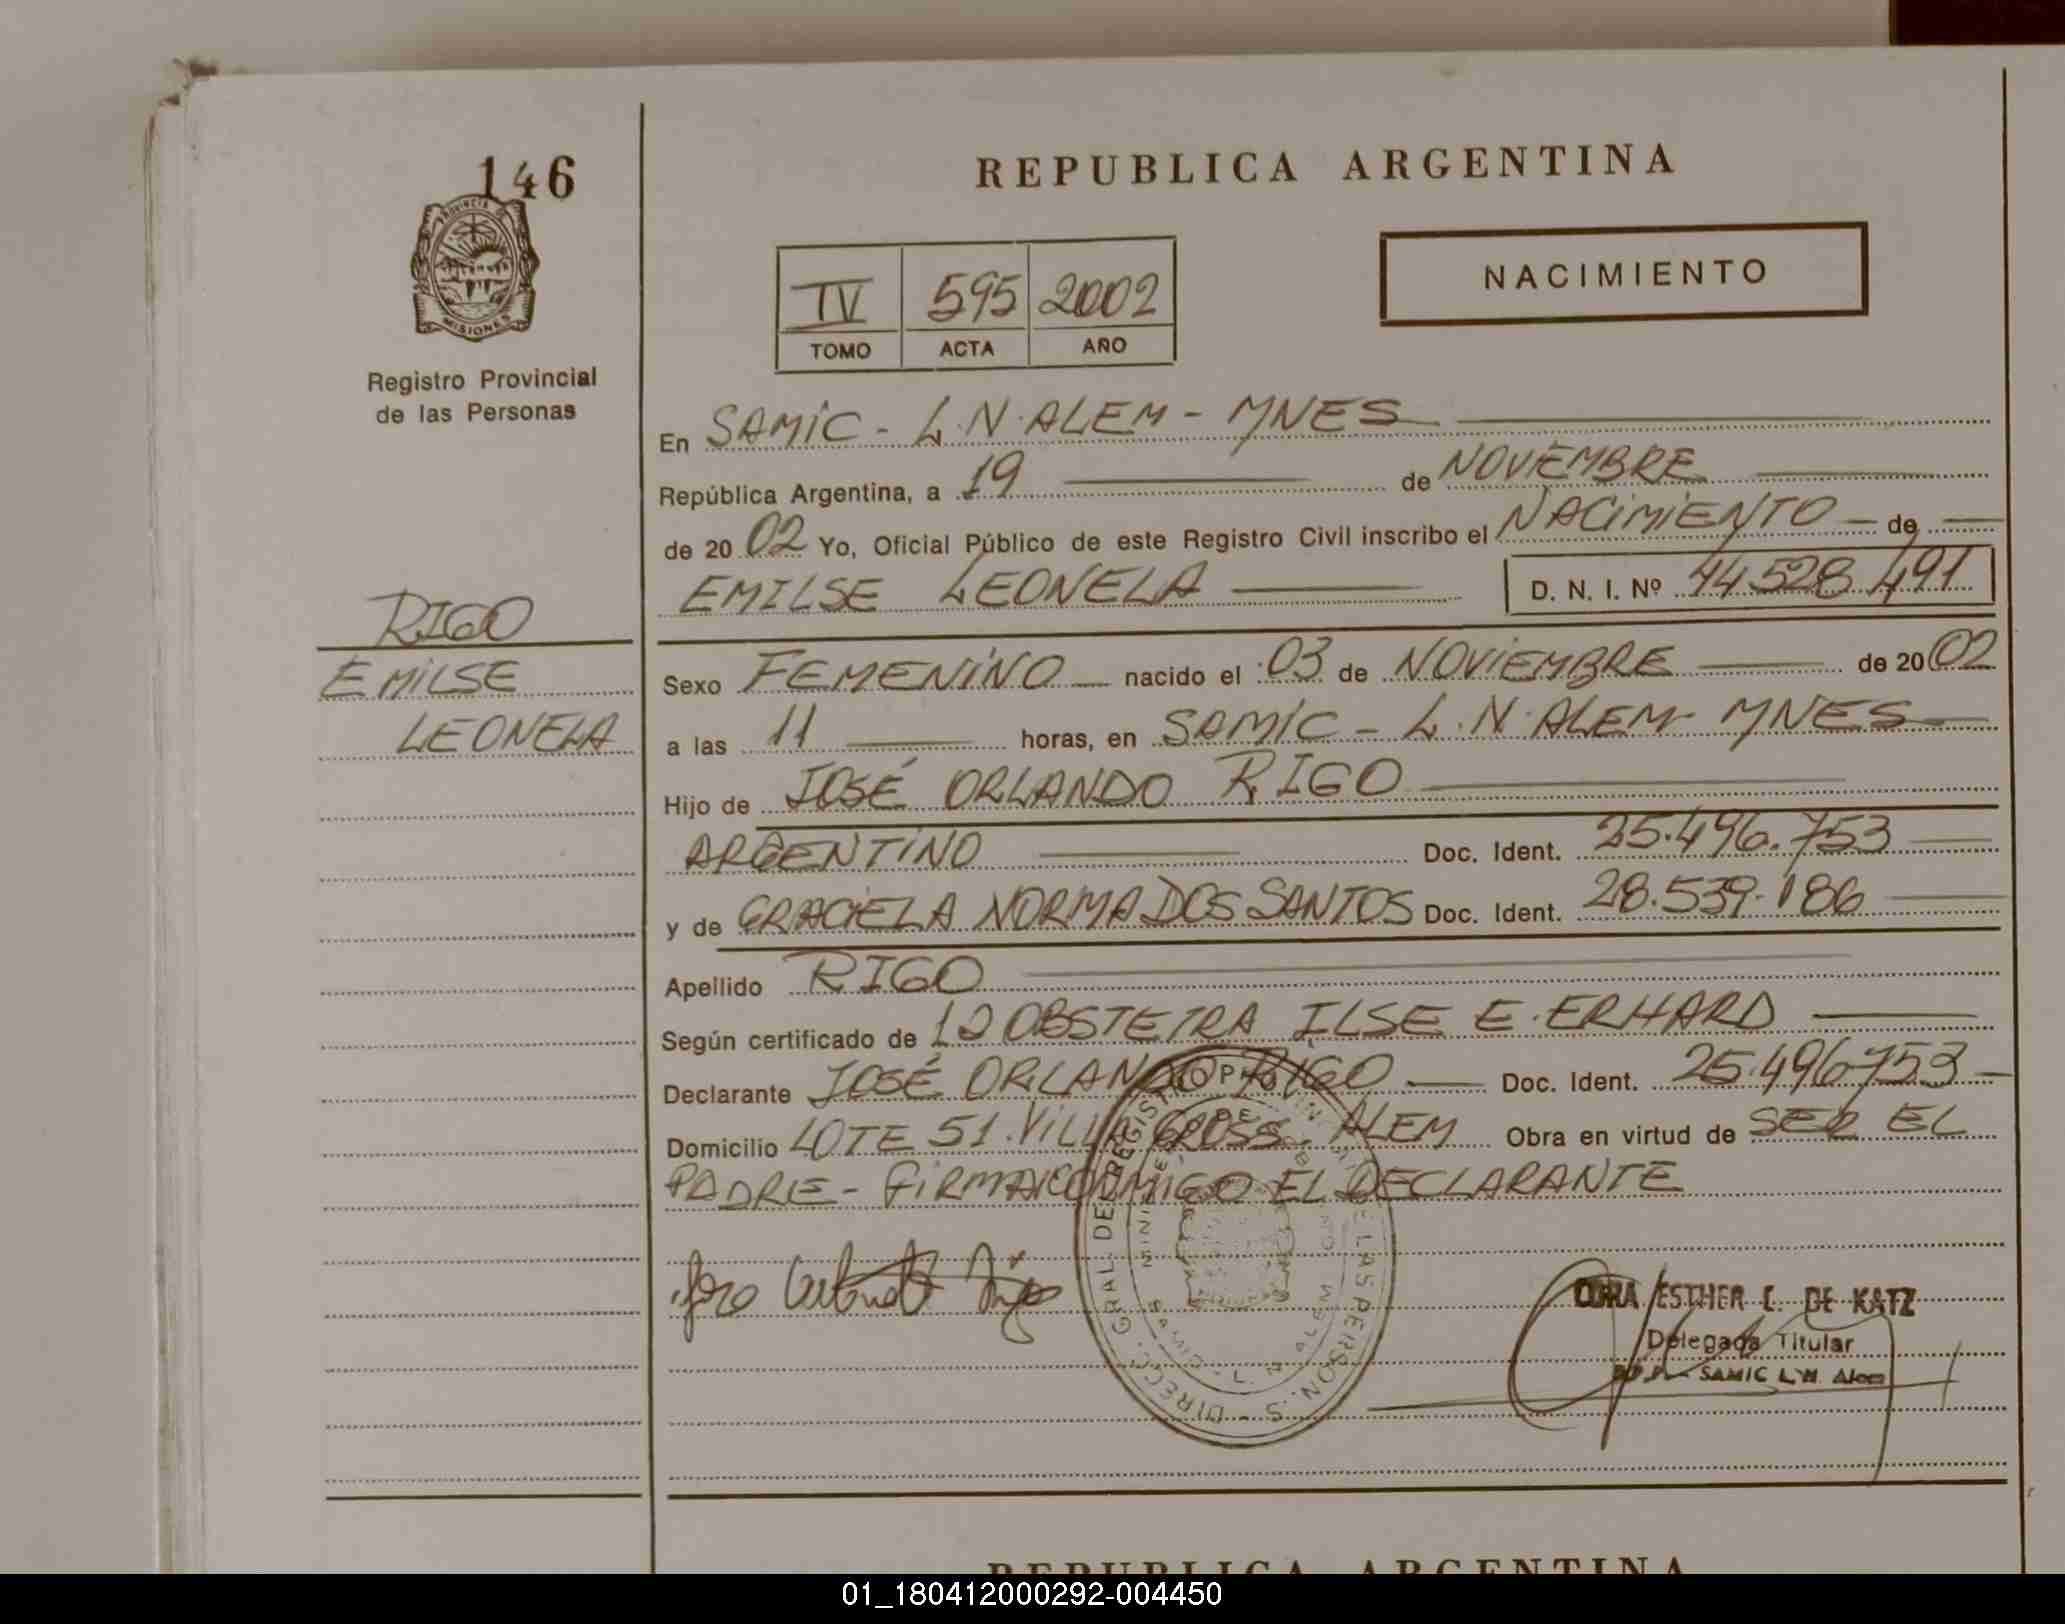 146
PROVINCIA DE
MISIONES
Registro Provincial
de las Personas
REPUBLICA ARGENTINA
NACIMIENTO
IV 595 2002
TOMO ACTA AÑO
En SAMIC - L.N. ALEM - MNES
República Argentina, a 19 de NOVIEMBRE
de 2002 Yo, Oficial Público de este Registro Civil inscribo el NACIMIENTO de
EMILSE LEONELA D. N. I. Nº 44.528.491
RIGO
EMILSE
LEONELA
Sexo FEMENINO nacido el 03 de NOVIEMBRE de 2002
a las 11 horas, en SAMIC - L.N. ALEM - MNES
Hijo de JOSÉ ORLANDO RIGO
ARGENTINO Doc. Ident. 25.496.753
y de GRACIELA NORMA DOS SANTOS Doc. Ident. 28.539.186
Apellido RIGO
Según certificado de LA OBSTETRA ILSE E. ERHARD
Declarante JOSÉ ORLANDO RIGO Doc. Ident. 25.496753
Domicilio LOTE 51. VILLA GROSS. ALEM Obra en virtud de SER EL
PADRE - FIRMA CONMIGO EL DECLARANTE
DIRECC. GRAL. DEL REGISTRO PROVINCIAL DE LAS PERSONAS
SAMIC L. N. ALEM
ESTHER E. DE KATZ
Delegada Titular
SAMIC L.N. Alem
REPUBLICA ARGENTINA
01_180412000292-004450